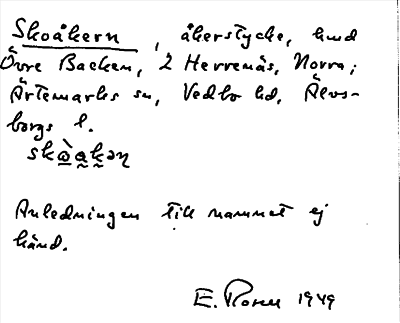 Skoåkern, åkerstycke, hmd
Övre Backen, 2 Herrenäs, Norra;
Ärtemarks sn, Vedbo hd, Älvs-
borgs l.
skòakən
Anledningen till namnet ej
känd.
E. Rosen 1949